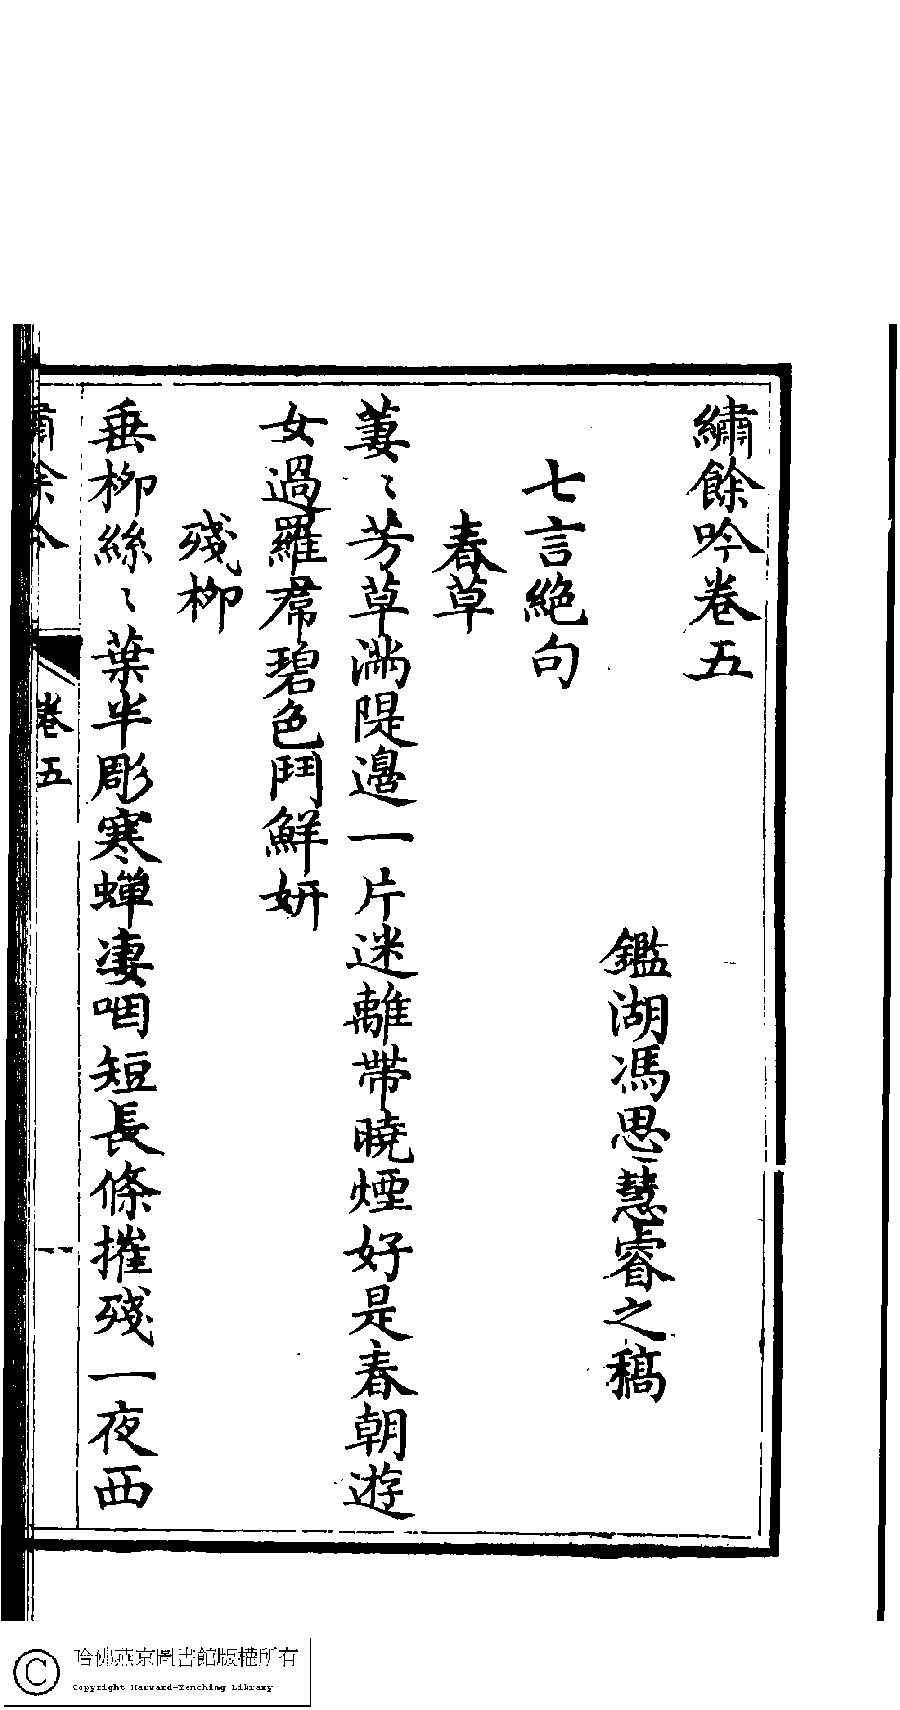 繡餘吟卷五
鑑湖馮思慧睿之稿
七言絶句
春草
萋〻芳草满隄邉一片迷離帶曉煙好是春朝遊
女過羅帬碧色鬥鮮妍
殘柳
垂柳絲〻葉半彫寒蟬凄咽短長條摧殘一夜西
繡餘吟
卷五
一
哈佛燕京圖書館版權所有
Copyright Harvard-Yenching Library